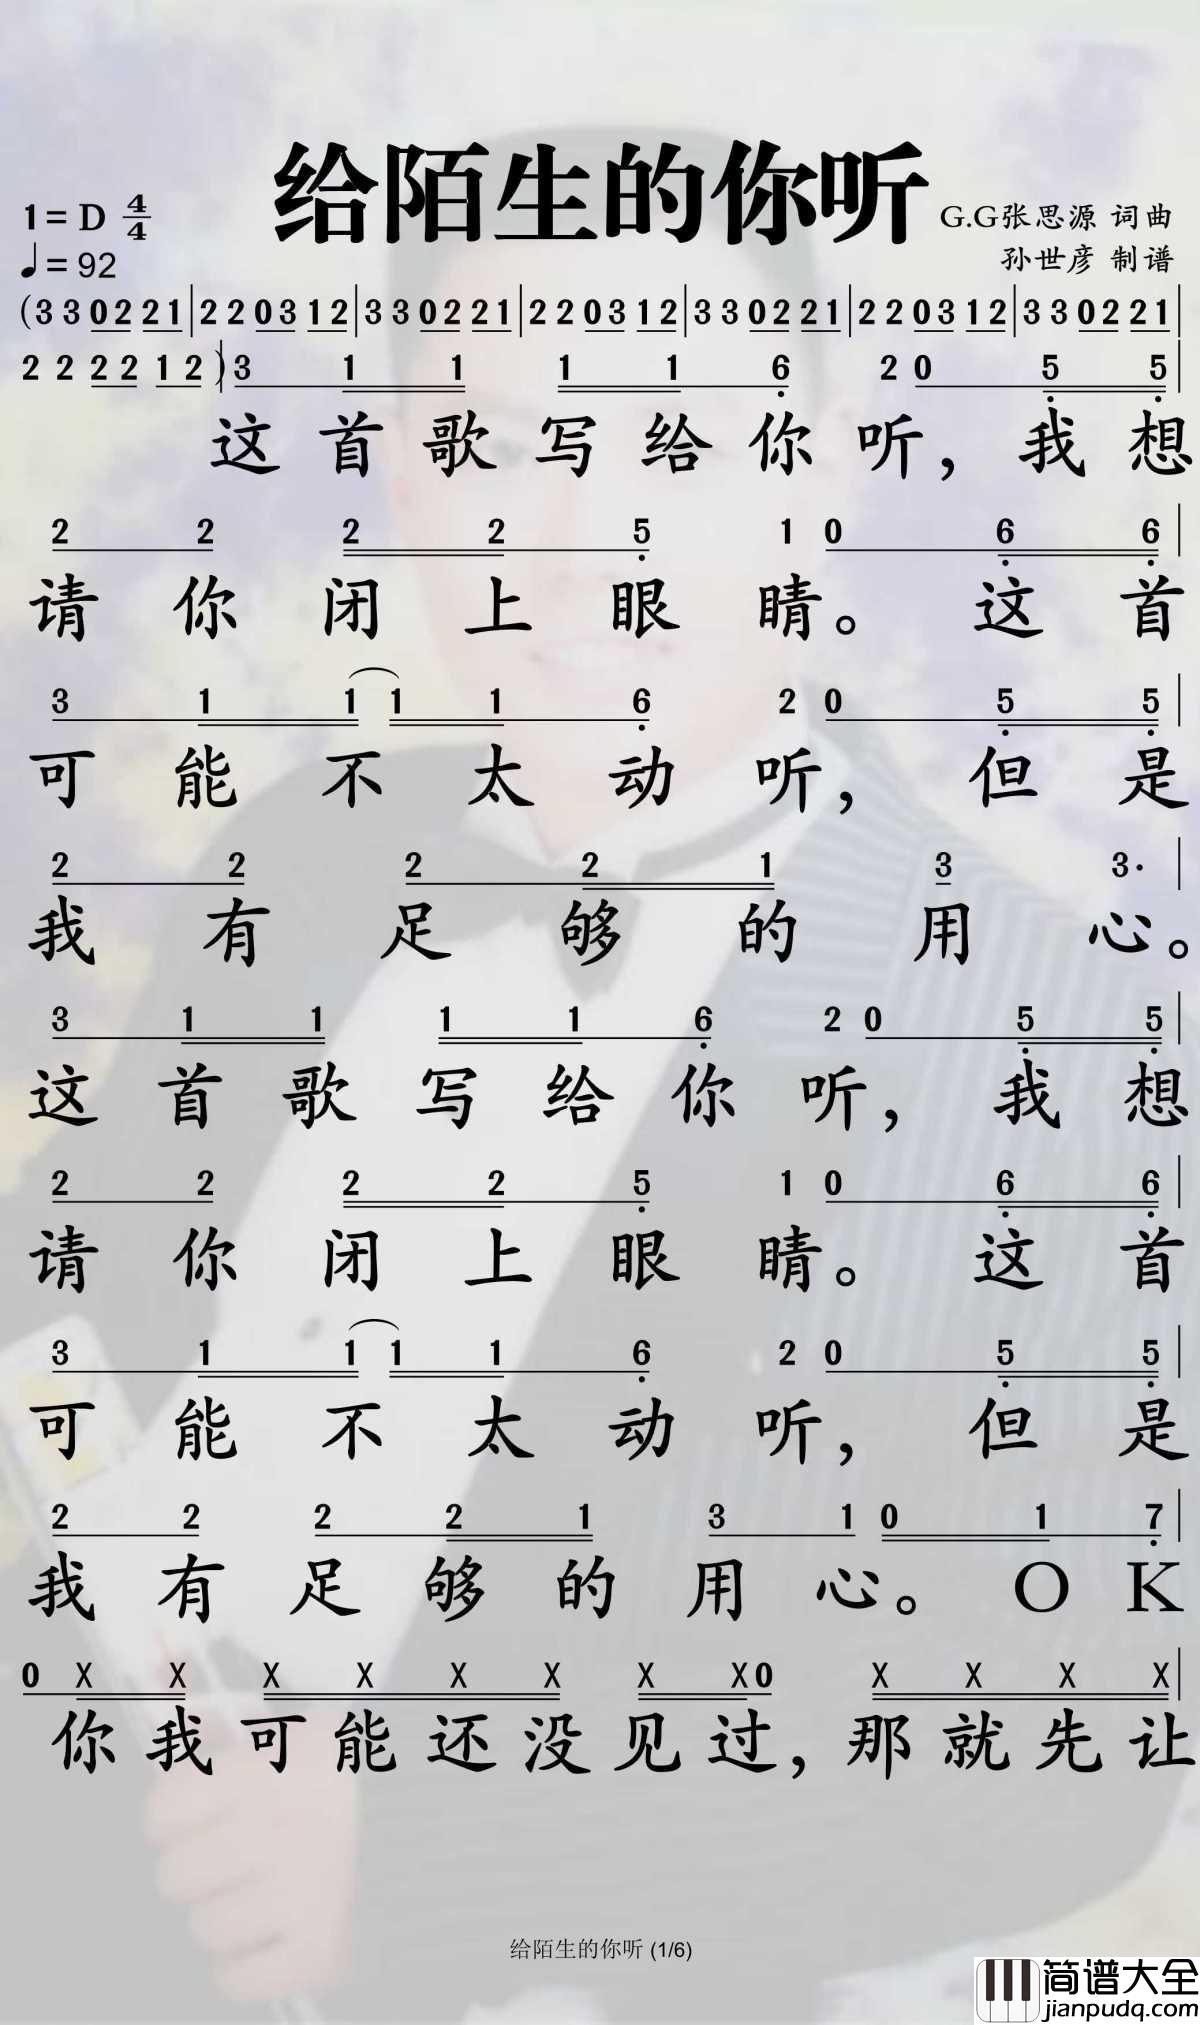 给陌生的你听
1= D 4/4
G.G张思源 词曲
♩= 92
孙世彦 制谱
(3 3 0 2 2 1 | 2 2 0 3 1 2 | 3 3 0 2 2 1 | 2 2 0 3 1 2 | 3 3 0 2 2 1 | 2 2 0 3 1 2 | 3 3 0 2 2 1 |
2 2 2 2 1 2 ) | 3 1 1 1 1 6 2 0 5 5 |
这首歌写给你听，我想
2 2 2 2 5 1 0 6 6 |
请你闭上眼睛。这首
3 1 1 1 1 6 2 0 5 5 |
可能不太动听，但是
2 2 2 2 1 3 3· |
我有足够的用心。
3 1 1 1 1 6 2 0 5 5 |
这首歌写给你听，我想
2 2 2 2 5 1 0 6 6 |
请你闭上眼睛。这首
3 1 1 1 1 6 2 0 5 5 |
可能不太动听，但是
2 2 2 2 1 3 1 0 1 7 |
我有足够的用心。O K
0 X X X X X X X X 0 X X X X |
你我可能还没见过，那就先让
给陌生的你听 (1/6)
简谱大全
jianpudq.com